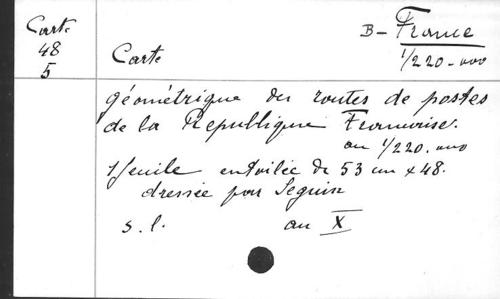 Carte
48
5
B - France
1/220.000
Carte
géométrique des routes de postes
de la République Francaise.
au 1/220.000
1 feuille entoilée de 53 cm x 48.
dressée par Seguin
s.l. an X